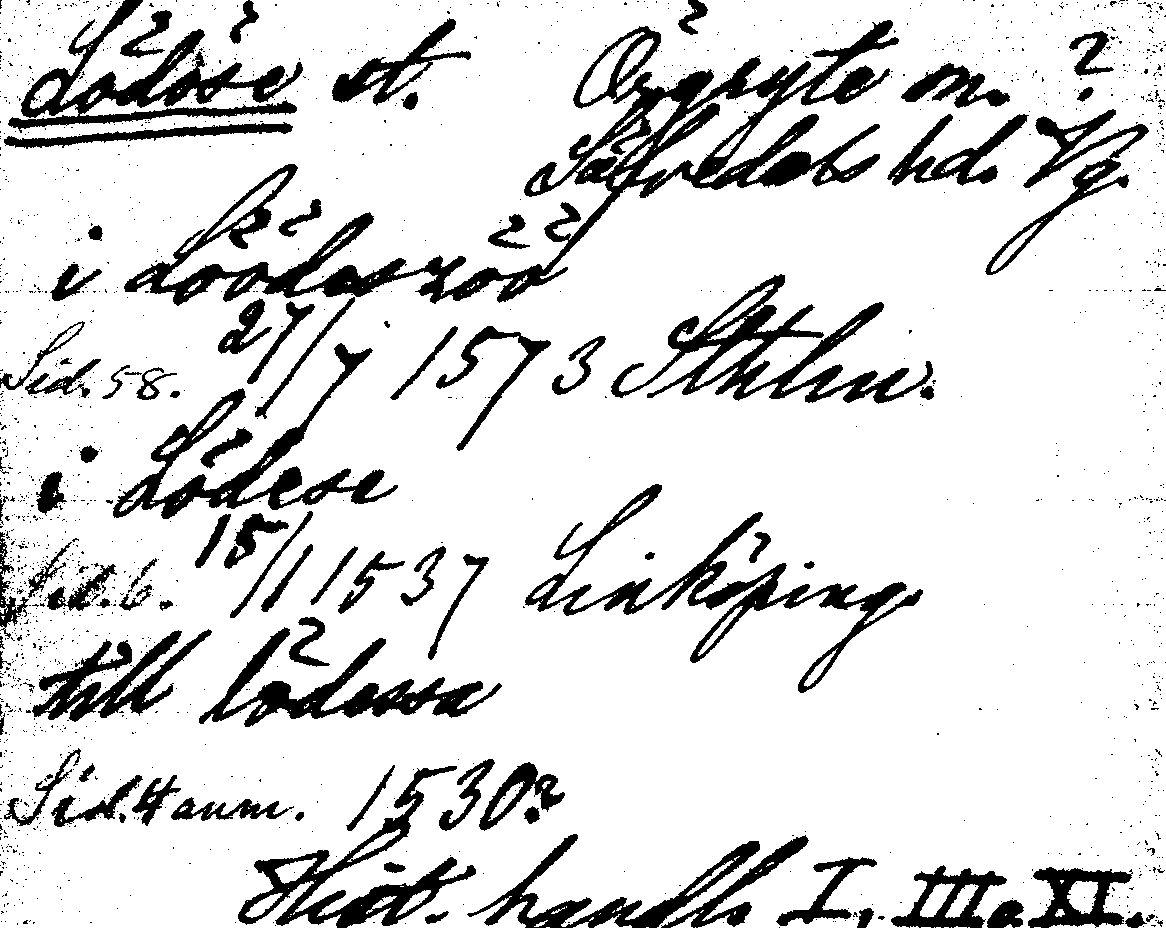 Lödöse st. Örgryte sn. ?
Säfvedals hd. Vg.
i Löödeszöö
Sid. 58. 27/7 1573 Sthlm.
i Lödese
Sid. 6. 15/1 1537 Linköping.
till lödessa
Sid. 4 anm. 1530?
Hist. handl. I, III o. XI.